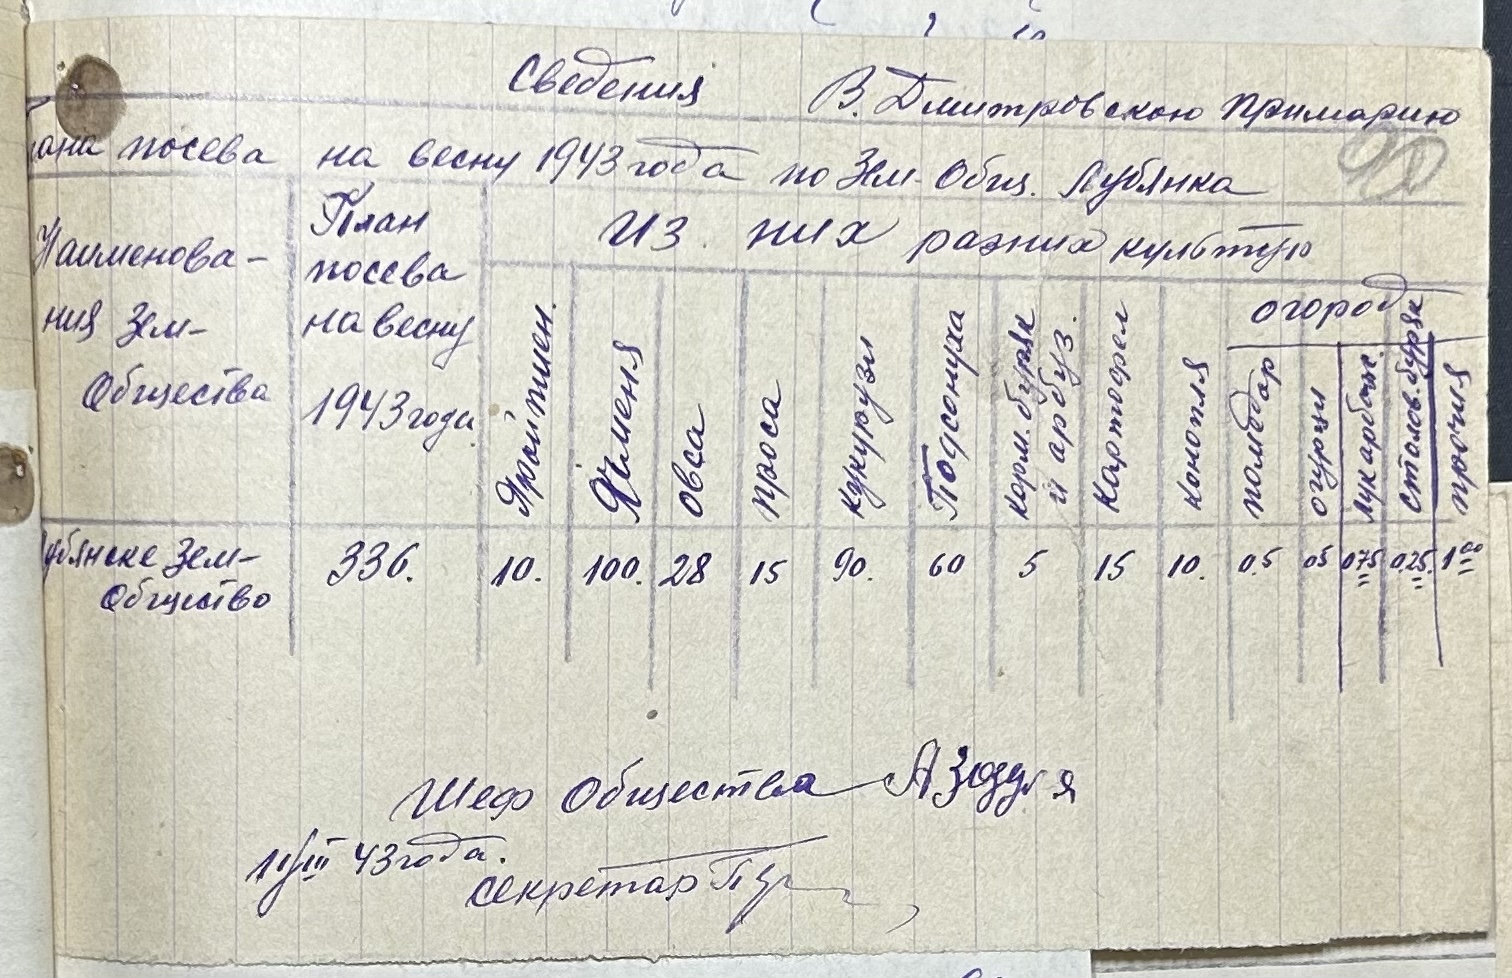 Сведения В. Дмитровскою примарию
ана посева на весну 1943 года по Зем. Общ. Лубянка
Наименова-
ния Зем-
Общества
План
посева
на весну
1943 года
Из них разних культур
Ярой пшен.
Ячменя
Овса
проса
кукурузи
Подсонуха
корм. буряк
и арбуз.
Картофел
конопля
огород
помидор
огурци
лук арбаж.
столов. буряк
прочия
убянске Зем-
Общество
336. 10. 100. 28 15 90. 60 5 15 10. 0.5 05 075 0.25. 1 00
Шеф Общества А Зозуля
11/III 43 года.
секретар